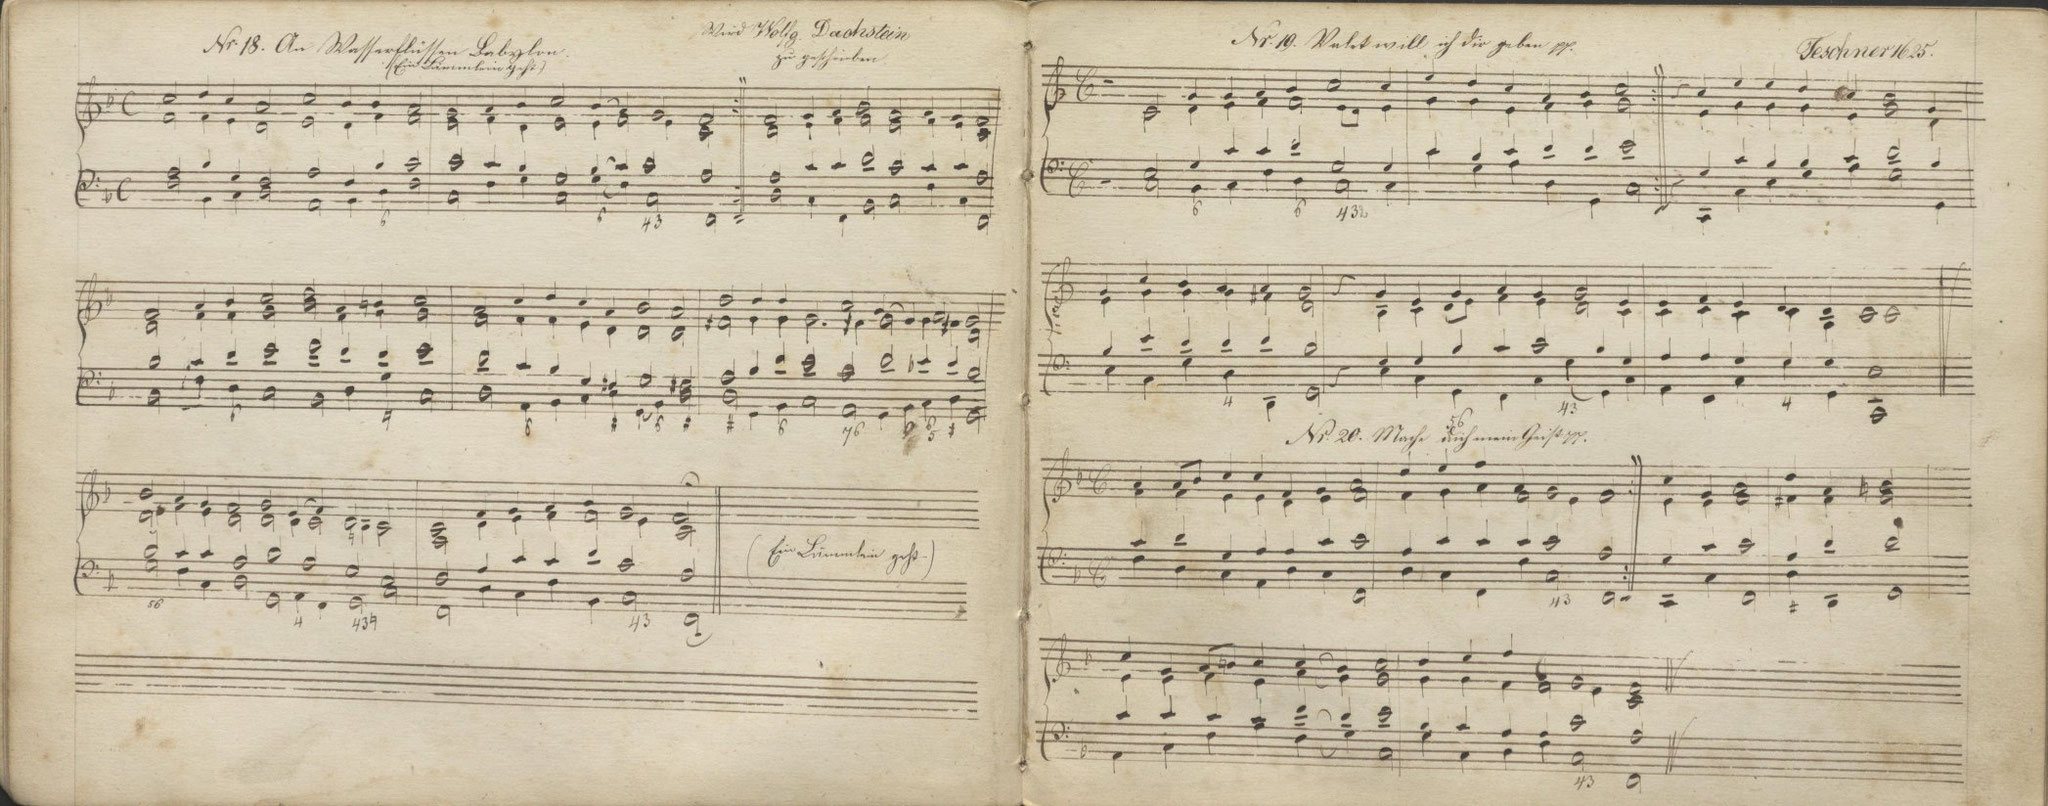 Nr. 18. An Wasserflüssen Babylon.
(Ein Lämmlein geht)
Wird Wolfg. Dachstein
zu geschrieben
6 6 43
6 6 6 76 6 6 5
56 4 43 43
(Ein Lämmlein geht.)
Nr. 19. Valet will ich dir geben pp.
Teschner 1625.
6 6 432
4 43 4
56
Nr. 20. Mache dich mein Geist pp.
43
43